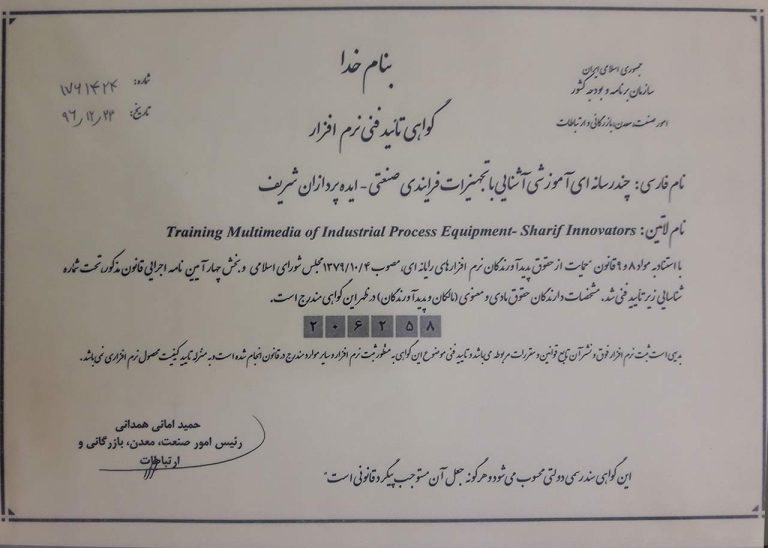 بنام خدا
جمهوری اسلامی ایران
سازمان برنامه و بودجه کشور
امور صنعت، معدن، بازرگانی و ارتباطات
شماره: ۱۷۶۱۴۲۴
تاریخ: ۹۶/۱۲/۲۳
گواهی تائید فنی نرم افزار
نام فارسی: چندرسانه ای آموزشی آشنایی با تجهیزات فرایندی صنعتی - ایده پردازان شریف
نام لاتین: Training Multimedia of Industrial Process Equipment- Sharif Innovators
با استناد به مواد ۸ و ۹ قانون حمایت از حقوق پدیدآورندگان نرم افزارهای رایانه ای، مصوب ۱۳۷۹/۱۰/۴ مجلس شورای اسلامی و بخش چهار آیین نامه اجرایی قانون مذکور، تحت شماره
شناسایی زیر تایید فنی شد. مشخصات دارندگان حقوق مادی و معنوی (مالکان و پدیدآورندگان) در ظهر این گواهی مندرج است.
۲۰۶۲۵۸
بدیهی است ثبت نرم افزار فوق و نشر آن تابع قوانین و مقررات مربوطه می باشد و تایید فنی موضوع این گواهی به منظور ثبت نرم افزار و سایر موارد مندرج در قانون انجام شده است و به منزله تایید کیفیت محصول نرم افزاری نمی باشد.
حمید امانی همدانی
رئیس امور صنعت، معدن، بازرگانی و
ارتباطات
این گواهی سند رسمی دولتی محسوب می شود و هرگونه جعل آن مستوجب پیگرد قانونی است"